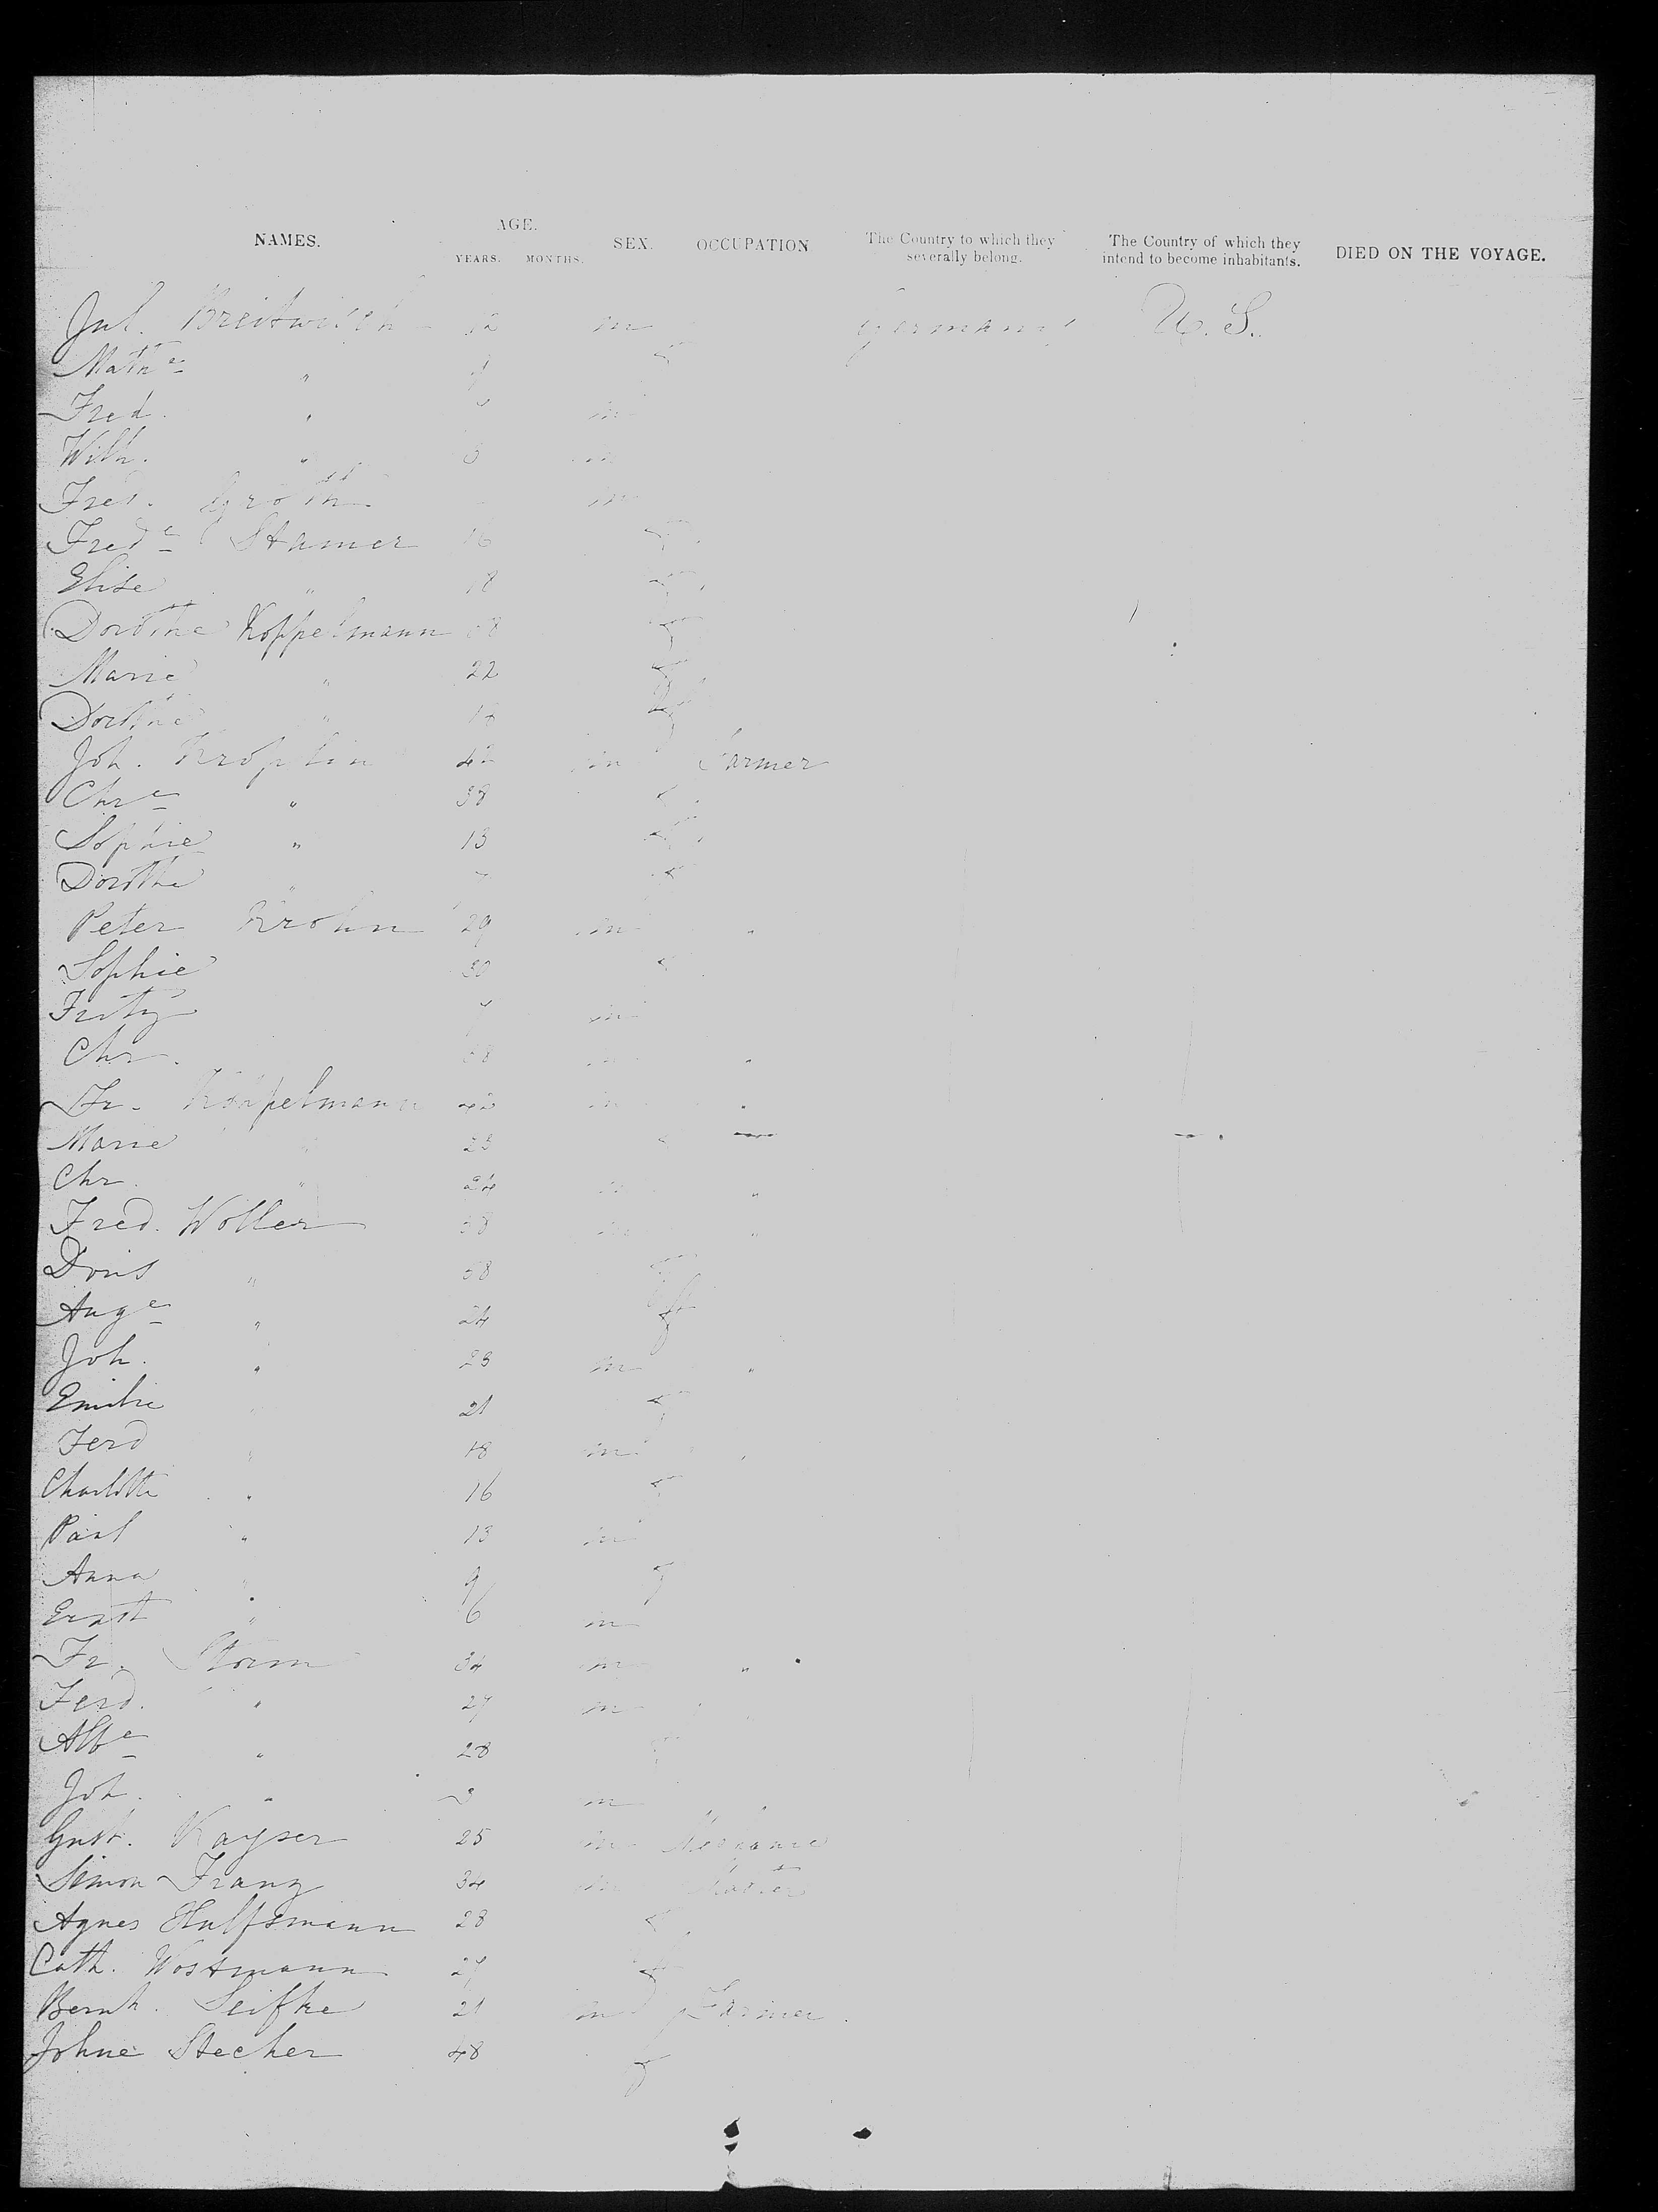 AGE.
NAMES. YEARS. MONTHS. SEX. OCCUPATION The Country to which they severally belong. The Country of which they intend to become inhabitants. DIED ON THE VOYAGE.
Jul. Breitwisch 12 m Germany U. S.
Math e " 9 f
Fred. " m
Wilh. " 6 m
Fred. Groth m
Fred e Stamer 16 f
Elise " 18 f
Dorothe Koppelmann 58 f
Marie " 22 f
Dorothe " f
Joh. Kröplin 42 m Farmer
Chr e " 38 f
Sophie " 13 f
Dorothe " 7 f
Peter Krohn 29 m "
Sophie 30 f
Fritz m
Chr. 58 m "
Fr. Koppelmann 42 m "
Marie " 23 f
Chr. " 24 m "
Fred. Woller 58 m "
Doris " 58 f
Aug e " 24 f
Joh. " 23 m "
Emilie " 21 f
Ferd " 18 m "
Charlotte " 16 f
Paul " 13 m
Anna " 9 f
Ernst " 6 m
Fr. Storm 34 m "
Ferd. " 27 m "
Alb e " 28 f
Joh. " 3 m
Gust. Kayser 25 m Mechanic
Simon Franz 34 m
Agnes Hulfsmann 28 f
Cath. Wostmann 27 f
Bernh. Seifke 21 m Farmer
Johne Stecher 48 f